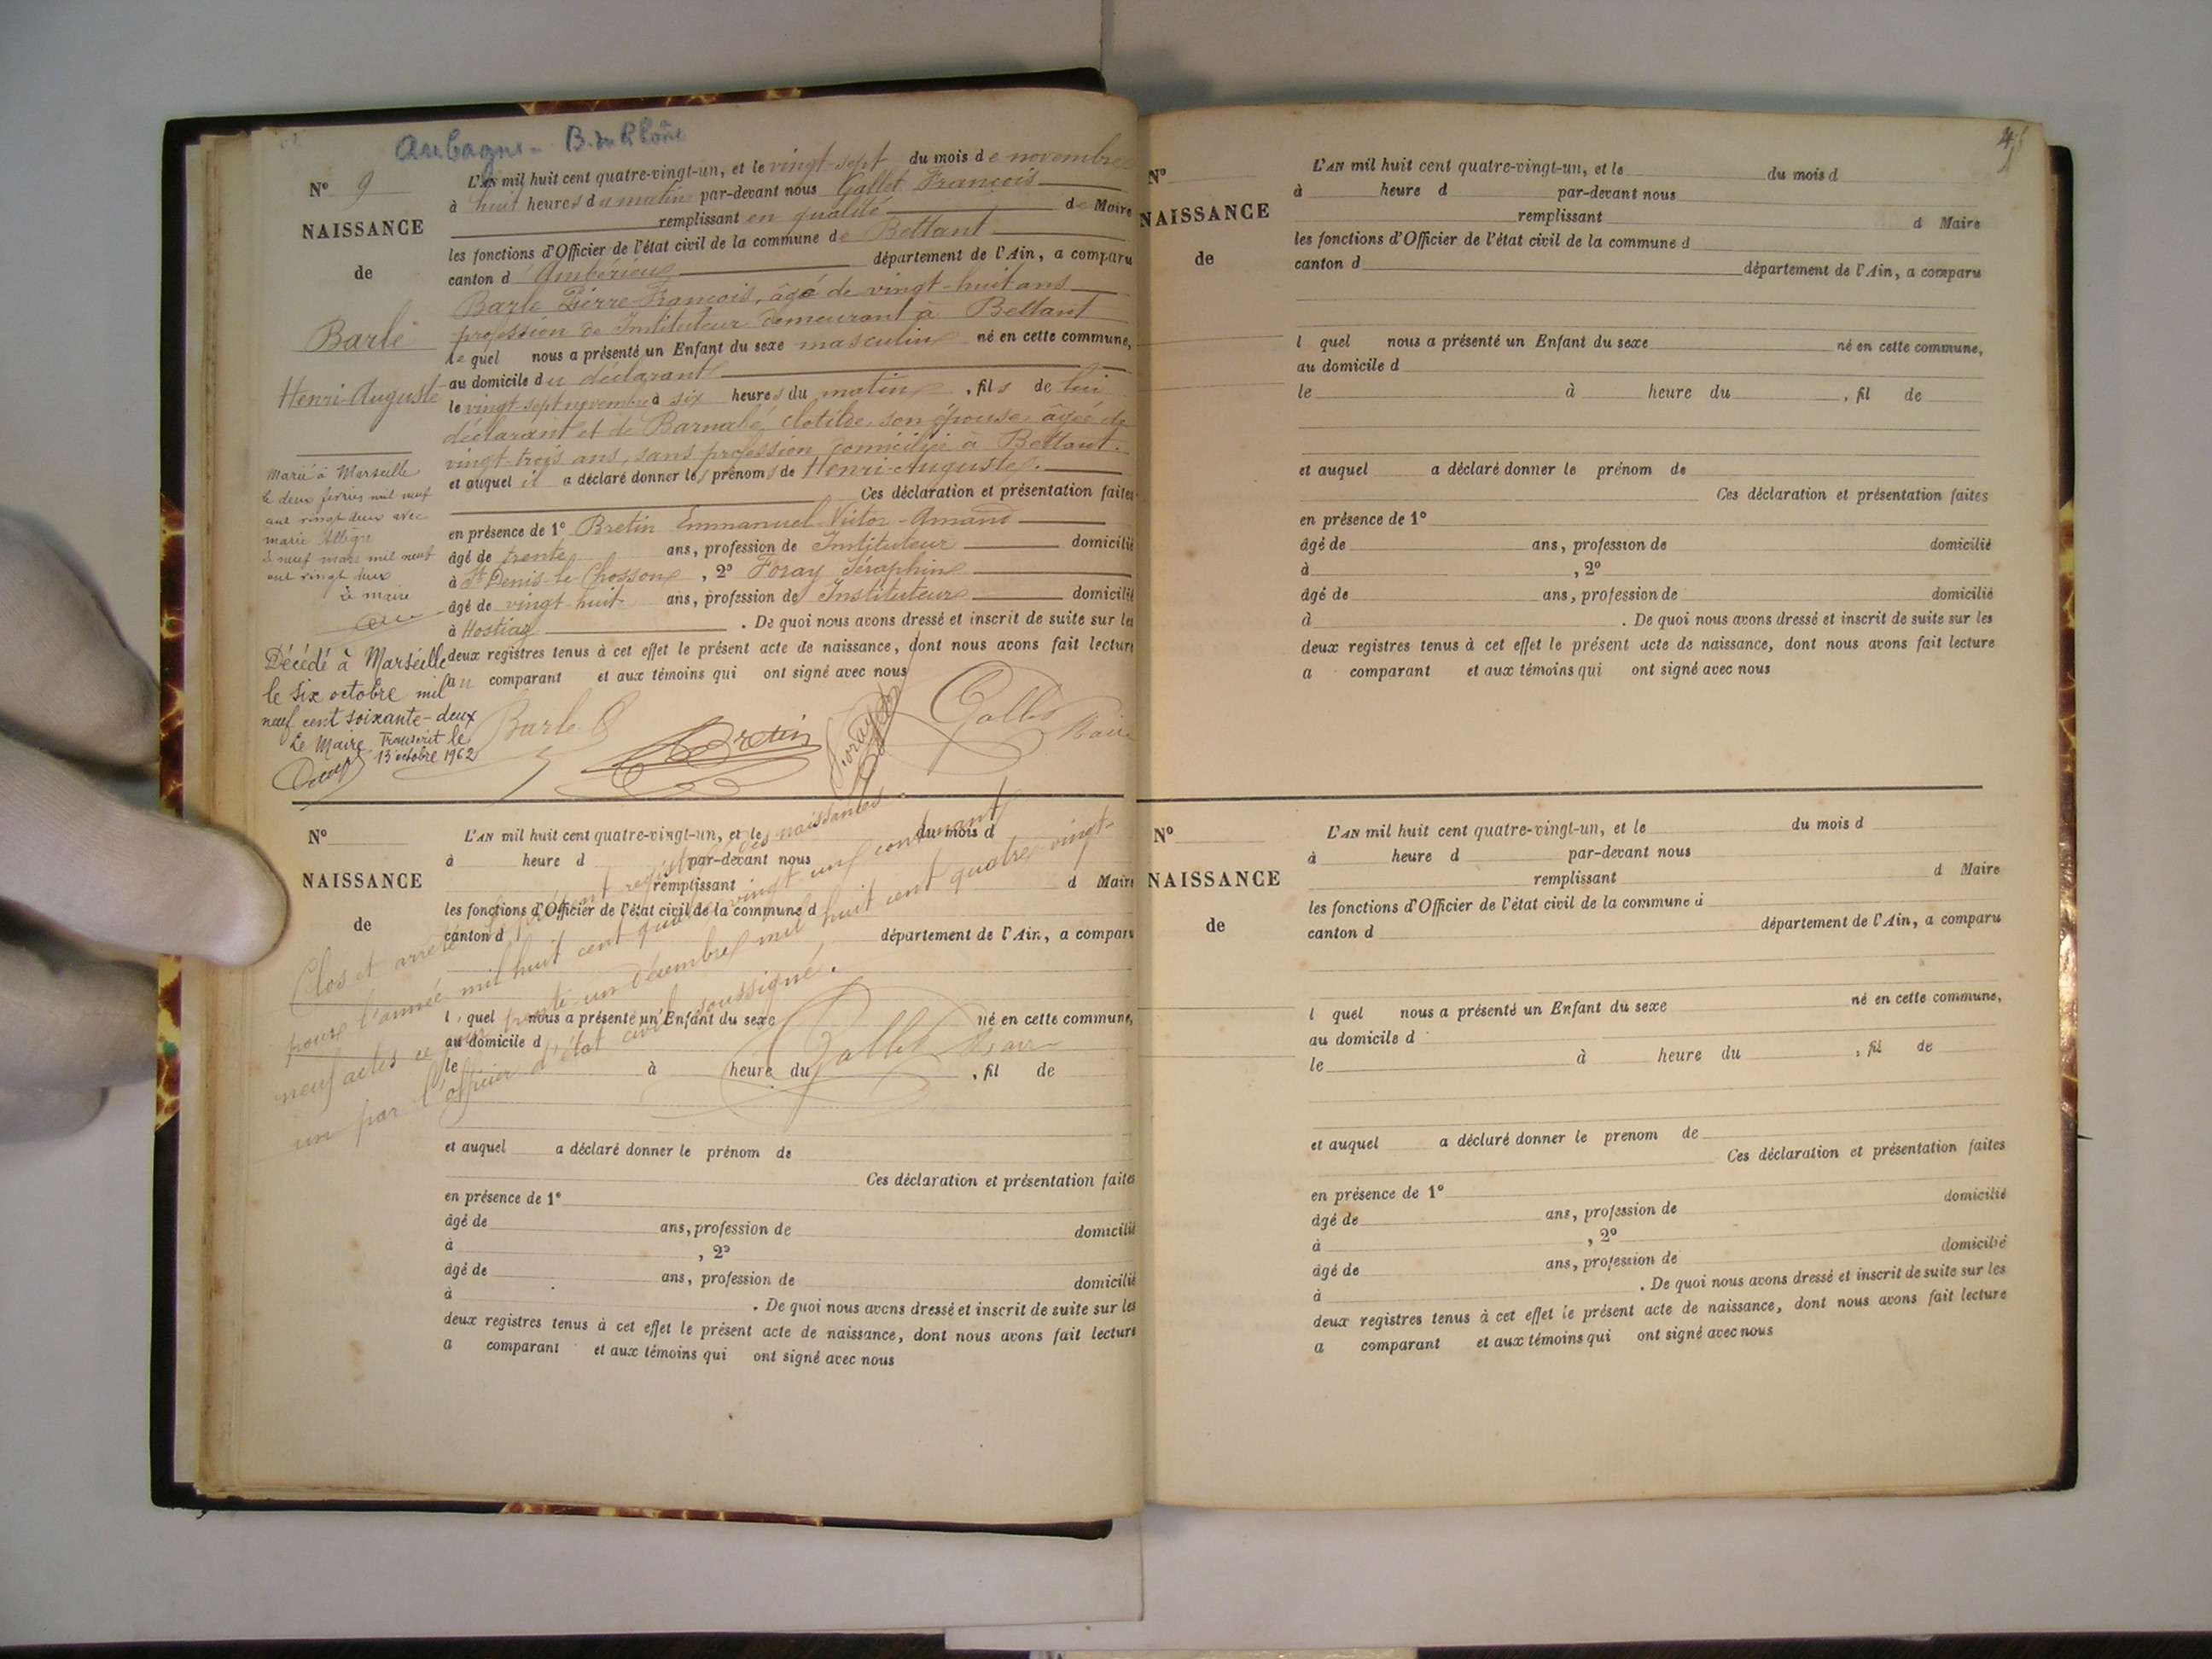 Aubagne - B. du Rhône
N° 9
NAISSANCE
de
Barle
Henri-Auguste
L'AN mil huit cent quatre-vingt-un, et le vingt-sept du mois de novembre
à huit heures du matin par-devant nous Gallet François
remplissant en qualité de Maire
les fonctions d'Officier de l'état civil de la commune de Bettant
canton d'Ambérieux département de l'Ain, a comparu
Barle Pierre-François, âgé de vingt-huit ans
profession de Instituteur demeurant à Bettant
lequel nous a présenté un Enfant du sexe masculin né en cette commune,
au domicile du déclarant
le vingt-sept novembre à six heures du matin, fils de lui
déclarant et de Barnabé Clotilde son épouse âgée de
vingt-trois ans, sans profession, domiciliée à Bettant.
et auquel il a déclaré donner les prénoms de Henri-Auguste.
Ces déclaration et présentation faites
en présence de 1° Bretin Emmanuel Victor-Amand
âgé de trente ans, profession de Instituteur domicilié
à St Denis-le-Chosson, 2° Foray Séraphin
âgé de vingt-huit ans, profession de Instituteur domicilié
à Hostiaz. De quoi nous avons dressé et inscrit de suite sur les
deux registres tenus à cet effet le présent acte de naissance, dont nous avons fait lecture
au comparant et aux témoins qui ont signé avec nous
Barle Bretin Foray Gallet Maire
Marié à Marseille
le deux février mil neuf
cent vingt deux avec
Marie
le neuf mars mil neuf
cent vingt deux
Le maire
Décédé à Marseille
le six octobre mil
neuf cent soixante-deux
Le Maire Transcrit le
13 octobre 1962
N°
NAISSANCE
de
L'AN mil huit cent quatre-vingt-un, et le du mois d
à heure d par-devant nous
remplissant d Maire
les fonctions d'Officier de l'état civil de la commune d
canton d département de l'Ain, a comparu
l quel nous a présenté un Enfant du sexe né en cette commune,
au domicile d
le à heure du , fil de
et auquel a déclaré donner le prénom de
Ces déclaration et présentation faites
en présence de 1°
âgé de ans, profession de domicilié
à , 2°
âgé de ans, profession de domicilié
à . De quoi nous avons dressé et inscrit de suite sur les
deux registres tenus à cet effet le présent acte de naissance, dont nous avons fait lecture
a comparant et aux témoins qui ont signé avec nous
Clos et arrêté le présent registre des naissances
pour l'année mil huit cent quatre vingt un contenant
neuf actes ce jour trente-un décembre mil huit cent quatre vingt-
un par l'officier d'état civil soussigné.
Gallet Maire
4
N°
NAISSANCE
de
L'AN mil huit cent quatre-vingt-un, et le du mois d
à heure d par-devant nous
remplissant d Maire
les fonctions d'Officier de l'état civil de la commune d
canton d département de l'Ain, a comparu
l quel nous a présenté un Enfant du sexe né en cette commune,
au domicile d
le à heure du , fil de
et auquel a déclaré donner le prénom de
Ces déclaration et présentation faites
en présence de 1°
âgé de ans, profession de domicilié
à , 2°
âgé de ans, profession de domicilié
à . De quoi nous avons dressé et inscrit de suite sur les
deux registres tenus à cet effet le présent acte de naissance, dont nous avons fait lecture
a comparant et aux témoins qui ont signé avec nous
N°
NAISSANCE
de
L'AN mil huit cent quatre-vingt-un, et le du mois d
à heure d par-devant nous
remplissant d Maire
les fonctions d'Officier de l'état civil de la commune d
canton d département de l'Ain, a comparu
l quel nous a présenté un Enfant du sexe né en cette commune,
au domicile d
le à heure du , fil de
et auquel a déclaré donner le prenom de
Ces déclaration et présentation faites
en présence de 1°
âgé de ans, profession de domicilié
à , 2°
âgé de ans, profession de domicilié
à . De quoi nous avons dressé et inscrit de suite sur les
deux registres tenus à cet effet le présent acte de naissance, dont nous avons fait lecture
a comparant et aux témoins qui ont signé avec nous